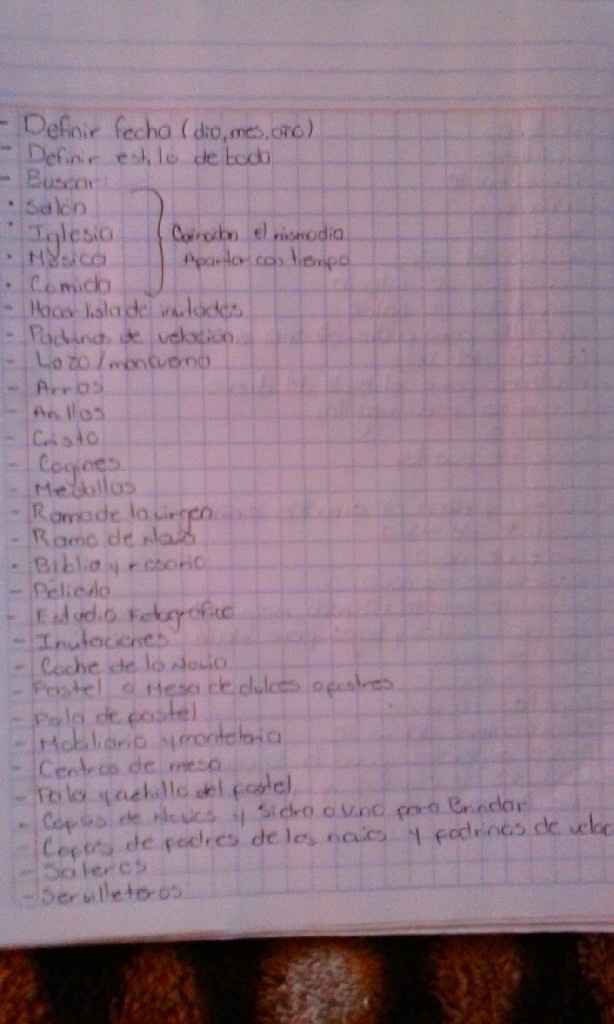 - Definir fecha (dia, mes, año)
- Definir estilo de boda
- Buscar
• Salón
• Iglesia
• Música
• Comida
Coincidan el mismo dia
Apartar con tiempo
- Hacer lista de invitados
- Padrinos de velacion
- Lazo / mancuerna
- Arras
- Anillos
- Cristo
- Cogines
- Medallas
- Ramo de la virgen
- Ramo de Novia
- Biblia y rosario
- Pelicula
- Estudio Fotografico
- Invitaciones
- Coche de la Novia
- Pastel o Mesa de dulces o postres
- Pala de pastel
- Mobiliario y manteleria
- Centros de mesa
- Pala y cuchillo del pastel
- Copas de Novios y Sidra o vino para Brindar
- Copas de padres de los novios y padrinos de velac
- Saleros
- Servilleteros